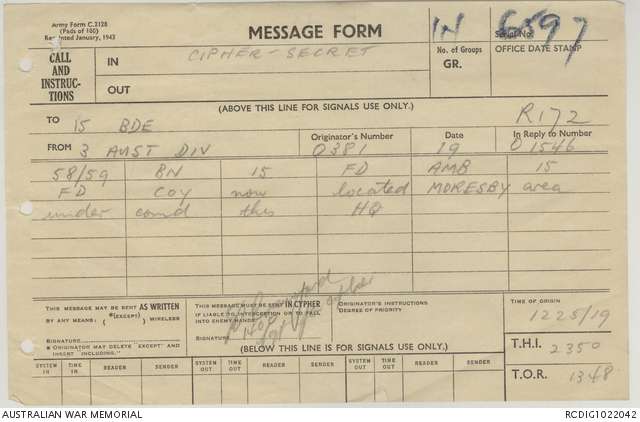 Army Form C.2128
(Pads of 100)
Reprinted January, 1943
MESSAGE FORM
IN 6597
Serial No.
CALL AND INSTRUC-TIONS
IN CIPHER - SECRET
No. of Groups
GR.
OFFICE DATE STAMP
OUT
(ABOVE THIS LINE FOR SIGNALS USE ONLY.)
R172
TO 15 BDE
Originator's Number Date In Reply to Number
FROM 3 AUST DIV 0381 19 01546
58/59 BN 15 FD AMB 15
FD COY now located MORESBY area
under comd this HQ
THIS MESSAGE MAY BE SENT AS WRITTEN
BY ANY MEANS. { *(EXCEPT) } WIRELESS
SIGNATURE
ORIGINATOR MAY DELETE "EXCEPT" AND
INSERT INCLUDING."
THIS MESSAGE MUST BE SENT IN CYPHER
IF LIABLE TO INTERCEPTION OR TO FALL
INTO ENEMY HANDS.
SIGNATURE
1405
ORIGINATOR'S INSTRUCTIONS
DEGREE OF PRIORITY
TIME OF ORIGIN
1225/19
T.H.I. 2350
T.O.R. 1348
(BELOW THIS LINE IS FOR SIGNALS USE ONLY.)
SYSTEM IN TIME IN READER SENDER SYSTEM OUT TIME OUT READER SENDER SYSTEM OUT TIME OUT READER SENDER
AUSTRALIAN WAR MEMORIAL RCDIG1022042